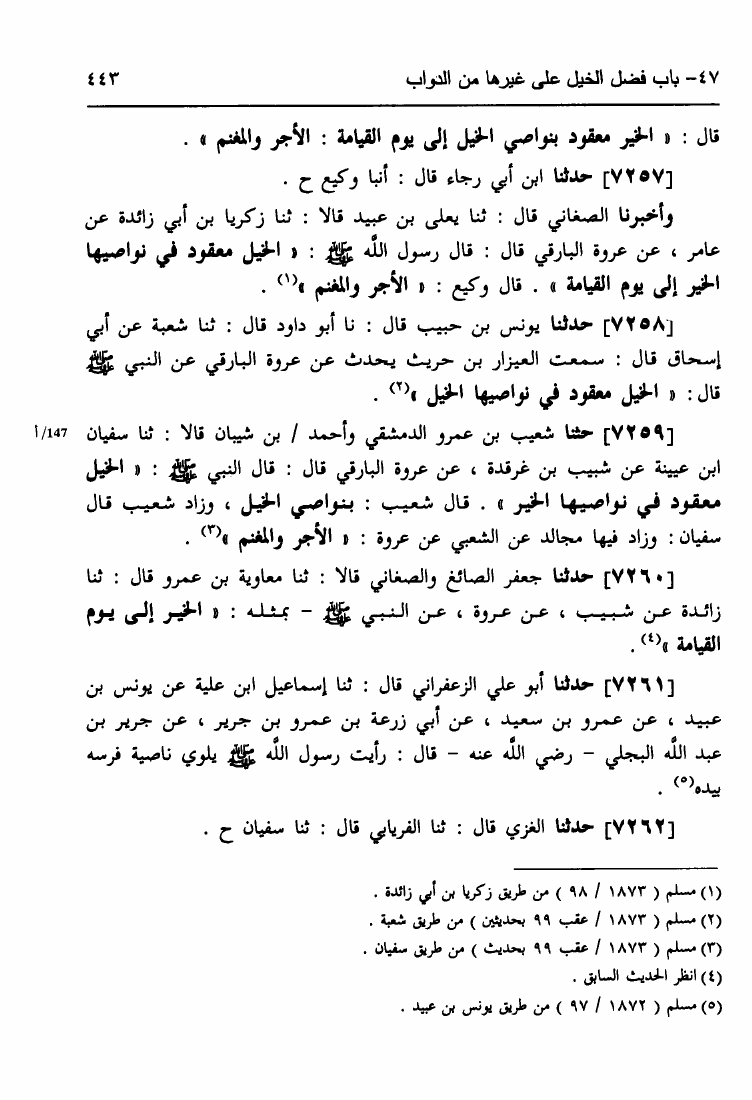 ٤٧- باب فضل الخيل على غيرها من الدواب ٤٤٣
قال : « الخير معقود بنواصي الخيل إلى يوم القيامة : الأجر والمغنم » .
[٧٢٥٧] حدثنا ابن أبي رجاء قال : أنبا وكيع ح .
وأخبرنا الصغاني قال : ثنا يعلى بن عبيد قالا : ثنا زكريا بن أبي زائدة عن
عامر ، عن عروة البارقي قال : قال رسول اللَّه ﷺ : « الخيل معقود في نواصيها
الخير إلى يوم القيامة » . قال وكيع : « الأجر والمغنم »(١) .
[٧٢٥٨] حدثنا يونس بن حبيب قال : نا أبو داود قال : ثنا شعبة عن أبي
إسحاق قال : سمعت العيزار بن حريث يحدث عن عروة البارقي عن النبي ﷺ
قال : « الخيل معقود في نواصيها الخيل »(٢) .
[٧٢٥٩] حثنا شعيب بن عمرو الدمشقي وأحمد / بن شيبان قالا : ثنا سفيان 147/أ
ابن عيينة عن شبيب بن غرقدة ، عن عروة البارقي قال : قال النبي ﷺ : « الخيل
معقود في نواصيها الخير » . قال شعيب : بنواصي الخيل ، وزاد شعيب قال
سفيان : وزاد فيها مجالد عن الشعبي عن عروة : « الأجر والمغنم »(٣) .
[٧٢٦٠] حدثنا جعفر الصائغ والصغاني قالا : ثنا معاوية بن عمرو قال : ثنا
زائدة عن شبيب ، عن عروة ، عن النبي ﷺ – بمثله : « الخير إلى يوم
القيامة »(٤) .
[٧٢٦١] حدثنا أبو علي الزعفراني قال : ثنا إسماعيل ابن علية عن يونس بن
عبيد ، عن عمرو بن سعيد ، عن أبي زرعة بن عمرو بن جرير ، عن جرير بن
عبد اللَّه البجلي – رضي اللَّه عنه – قال : رأيت رسول اللَّه ﷺ يلوي ناصية فرسه
بيده(٥) .
[٧٢٦٢] حدثنا الغزي قال : ثنا الفريابي قال : ثنا سفيان ح .
(١) مسلم ( ١٨٧٣ / ٩٨ ) من طريق زكريا بن أبي زائدة .
(٢) مسلم ( ١٨٧٣ / عقب ٩٩ بحديثين ) من طريق شعبة .
(٣) مسلم ( ١٨٧٣ / عقب ٩٩ بحديث ) من طريق سفيان .
(٤) انظر الحديث السابق .
(٥) مسلم ( ١٨٧٢ / ٩٧ ) من طريق يونس بن عبيد .